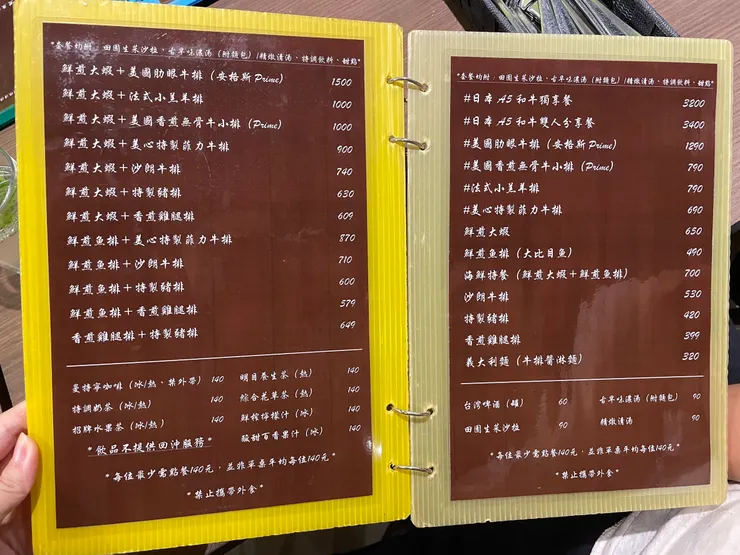 *套餐均附：田園生菜沙拉、古早味濃湯(附麵包)/精燉清湯、特調飲料、甜點*
鮮煎大蝦+美國肋眼牛排(安格斯Prime) 1500
鮮煎大蝦+法式小羔羊排 1000
鮮煎大蝦+美國香煎無骨牛小排(Prime) 1000
鮮煎大蝦+美心特製菲力牛排 900
鮮煎大蝦+沙朗牛排 740
鮮煎大蝦+特製豬排 630
鮮煎大蝦+香煎雞腿排 609
鮮煎魚排+美心特製菲力牛排 870
鮮煎魚排+沙朗牛排 710
鮮煎魚排+特製豬排 600
鮮煎魚排+香煎雞腿排 579
香煎雞腿排+特製豬排 649
曼特寧咖啡(冰/熱、禁外帶) 140
特調奶茶(冰/熱) 140
招牌水果茶(冰/熱) 140
明目養生茶(熱) 140
綜合花草茶(熱) 140
鮮榨檸檬汁(冰) 140
酸甜百香果汁(冰) 140
*飲品不提供回沖服務*
*每位最少需點餐140元，並非單桌平均每位140元*
*禁止攜帶外食*
*套餐均附：田園生菜沙拉、古早味濃湯(附麵包)/精燉清湯、特調飲料、甜點*
#日本A5和牛獨享餐 3200
#日本A5和牛雙人分享餐 3400
#美國肋眼牛排(安格斯Prime) 1290
#美國香煎無骨牛小排(Prime) 790
#法式小羔羊排 790
#美心特製菲力牛排 690
鮮煎大蝦 650
鮮煎魚排(大比目魚) 490
海鮮特餐(鮮煎大蝦+鮮煎魚排) 700
沙朗牛排 530
特製豬排 420
香煎雞腿排 399
義大利麵(牛排醬淋麵) 320
台灣啤酒(罐) 60
田園生菜沙拉 90
古早味濃湯(附麵包) 90
精燉清湯 90
*每位最少需點餐140元，並非單桌平均每位140元*
*禁止攜帶外食*